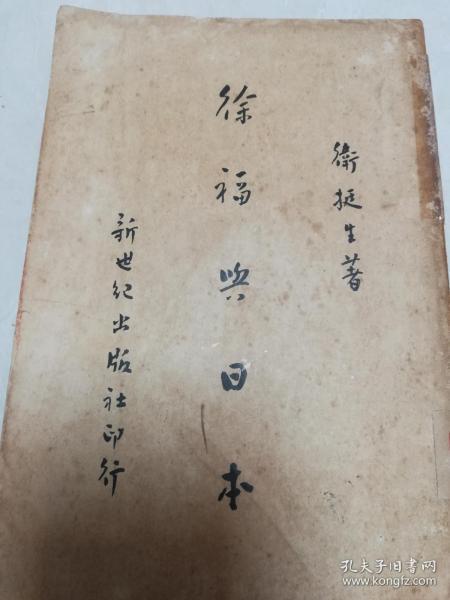 衛挺生著
徐福與日本
新世紀出版社印行
孔夫子旧书网
www.kongfz.com